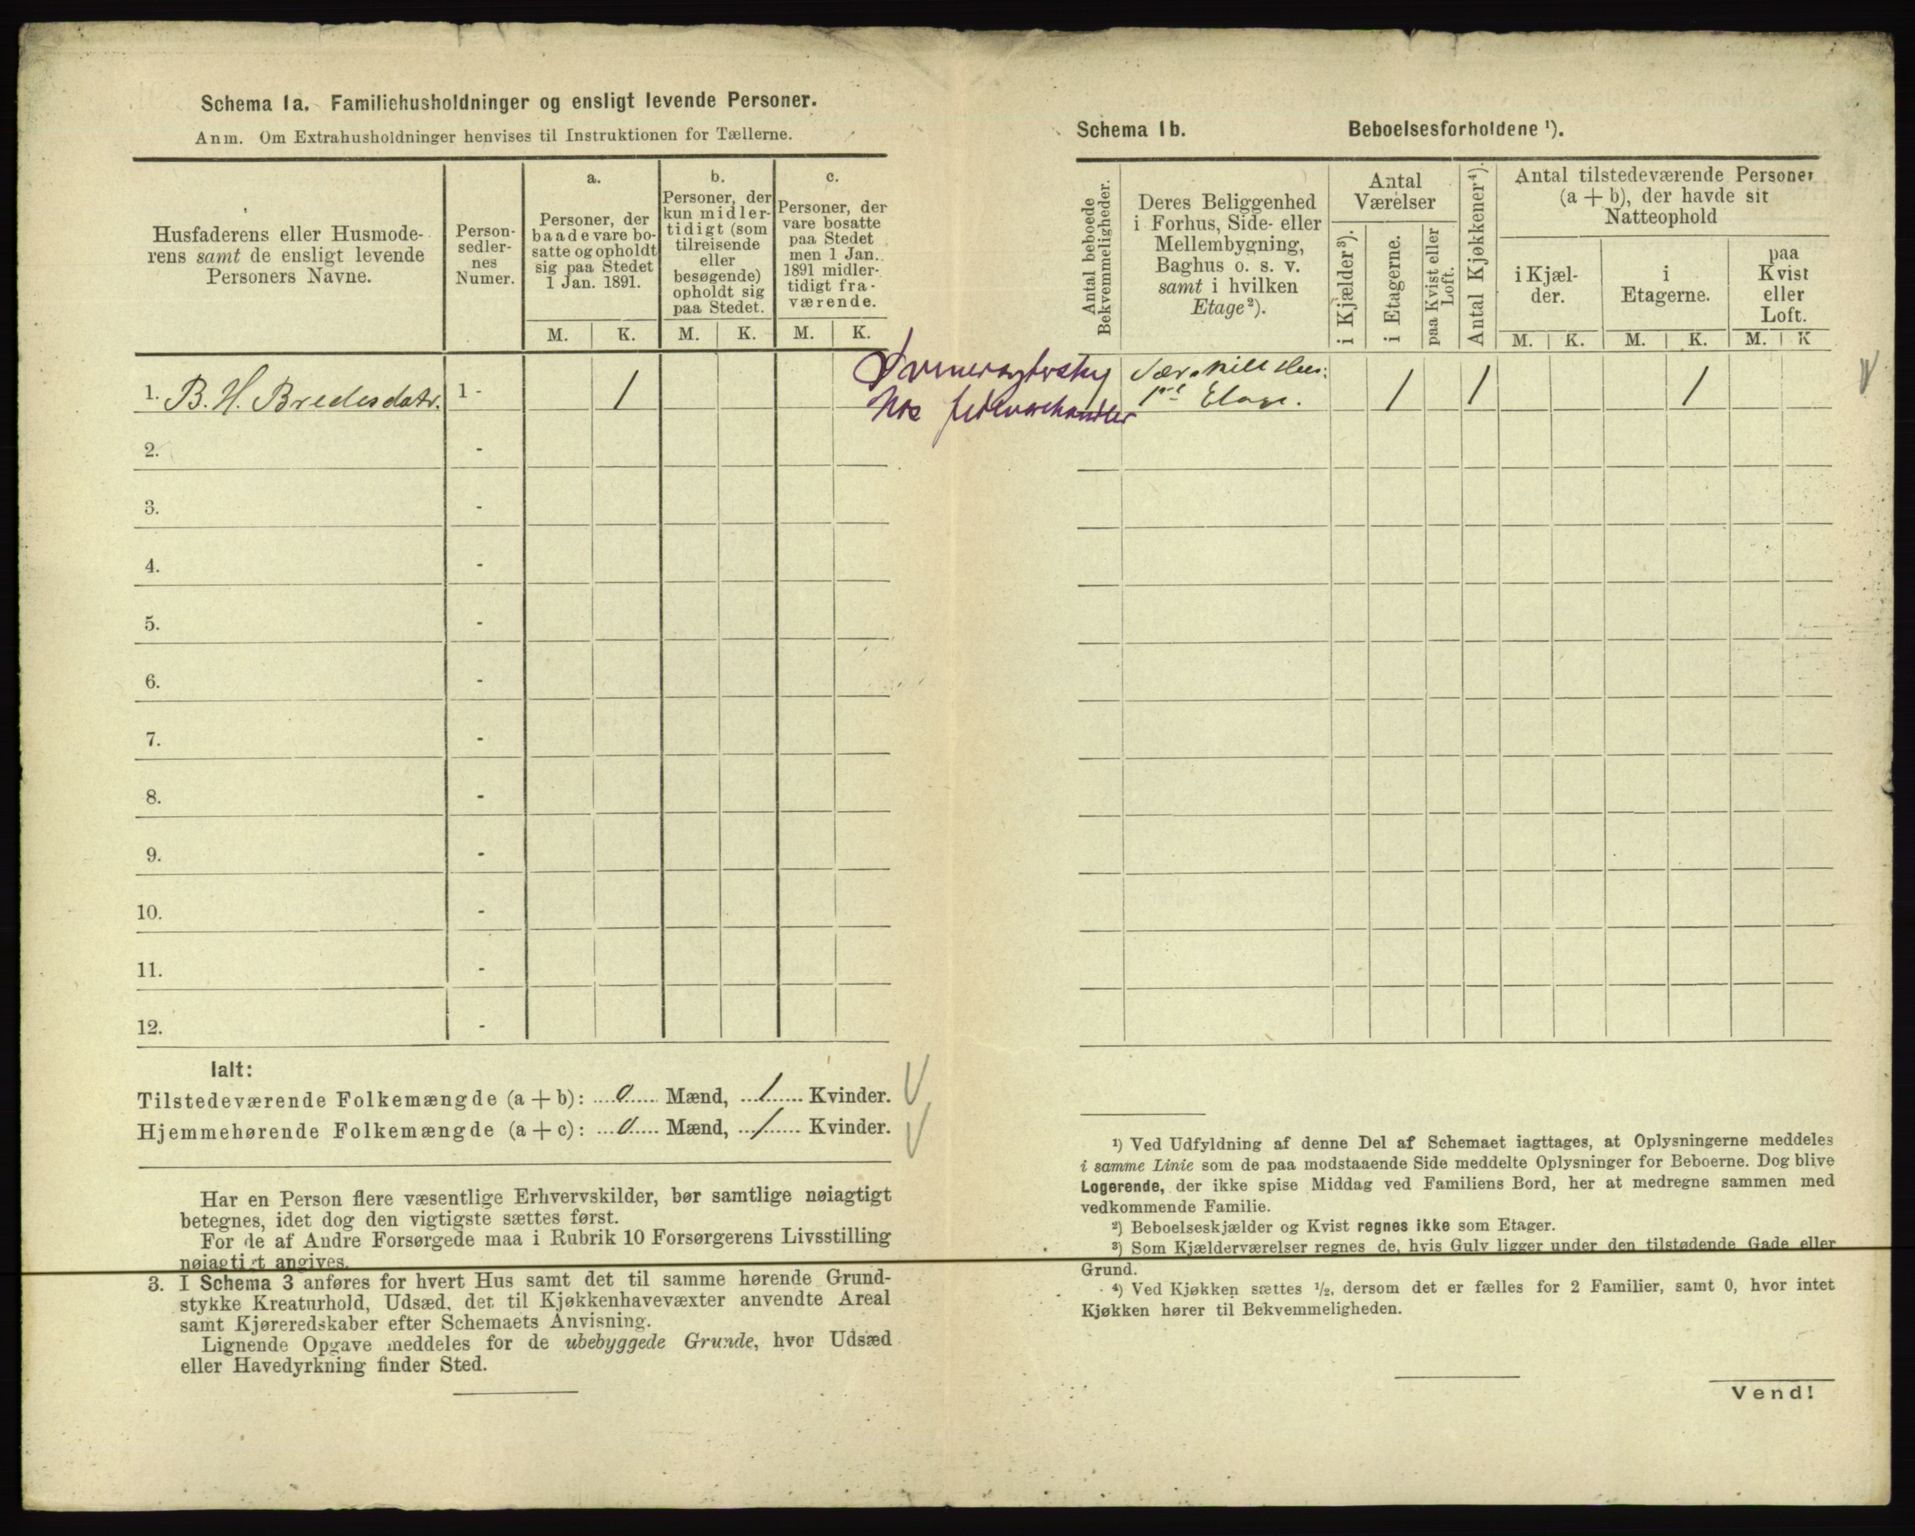 Schema 1a. Familiehusholdninger og ensligt levende Personer.
Anm. Om Extrahusholdninger henvises til Instruktionen for Tællerne.
Husfaderens eller Husmode-
rens samt de ensligt levende
Personers Navne.
Person-
sedler-
nes
Numer.
a.
Personer, der
baade vare bo-
satte og opholdt
sig paa Stedet
1 Jan. 1891.
b.
Personer, der
kun midler-
tidigt (som
tilreisende
eller
besøgende)
opholdt sig
paa Stedet.
c.
Personer, der
vare bosatte
paa Stedet
men 1 Jan.
1891 midler-
tidigt fra-
værende.
M. K. M. K. M. K.
1. B. H. Bredesdatr. 1 - 1
2. -
3. -
4. -
5. -
6. -
7. -
8. -
9. -
10. -
11. -
12. -
Ialt:
Tilstedeværende Folkemængde (a + b): 0 Mænd, 1 Kvinder.
Hjemmehørende Folkemængde (a + c): 0 Mænd, 1 Kvinder.
Har en Person flere væsentlige Erhvervskilder, bør samtlige nøiagtigt
betegnes, idet dog den vigtigste sættes først.
For de af Andre Forsørgede maa i Rubrik 10 Forsørgerens Livsstilling
nøiagtigt angives.
3. I Schema 3 anføres for hvert Hus samt det til samme hørende Grund-
stykke Kreaturhold, Udsæd, det til Kjøkkenhavevæxter anvendte Areal
samt Kjøreredskaber efter Schemaets Anvisning.
Lignende Opgave meddeles for de ubebyggede Grunde, hvor Udsæd
eller Havedyrkning finder Sted.
Schema 1b. Beboelsesforholdene ¹).
Antal beboede
Bekvemmeligheder.
Deres Beliggenhed
i Forhus, Side- eller
Mellembygning,
Baghus o. s. v.
samt i hvilken
Etage²).
Antal
Værelser
i Kjælder³).
i Etagerne.
paa Kvist eller
Loft.
Antal Kjøkkener⁴).
Antal tilstedeværende Personer
(a + b), der havde sit
Natteophold
i Kjæl-
der.
i
Etagerne.
paa
Kvist
eller
Loft.
M. K. M. K. M. K
Særskilt Hus.
1ste Etage. 1 1 1
hos
¹) Ved Udfyldning af denne Del af Schemaet iagttages, at Oplysningerne meddeles
i samme Linie som de paa modstaaende Side meddelte Oplysninger for Beboerne. Dog blive
Logerende, der ikke spise Middag ved Familiens Bord, her at medregne sammen med
vedkommende Familie.
²) Beboelseskjælder og Kvist regnes ikke som Etager.
³) Som Kjælderværelser regnes de, hvis Gulv ligger under den tilstødende Gade eller
Grund.
⁴) Ved Kjøkken sættes ½, dersom det er fælles for 2 Familier, samt 0, hvor intet
Kjøkken hører til Bekvemmeligheden.
Vend!